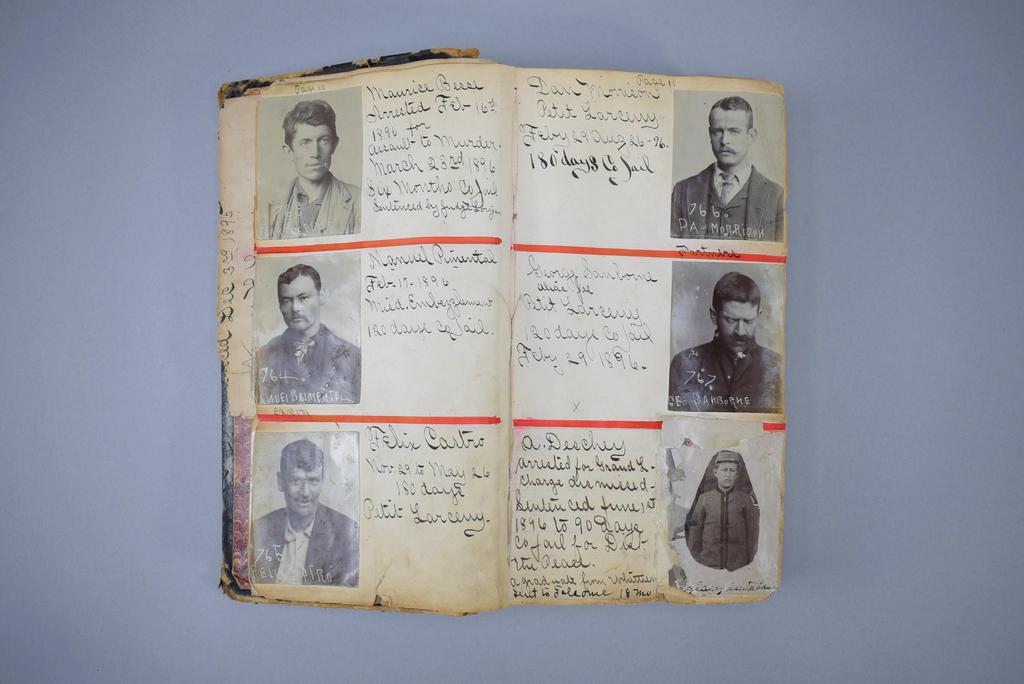 Page 10
Maurice Bease
Arrested Feb 16th
1896 for
assault to Murder.
March 23rd 1896
Six Months Co Jail
Sentenced by Judge
Manuel Pimental
Feb-17-1896
Misd. Embezzlement
120 days Co Jail.
764
MUEL PIMENTEL
Felix Castro
Nov 29 to May 26
180 days
Petit Larceny.
765
FELIX CASTRO
Dec 3rd 1895
Page 11
Dan Morrison
Petit Larceny
Feby 29 Aug 26-96.
180 days Co Jail
766
DA- MORRISON
Partners
George Sanborne
alias Joe
Petit Larceny
120 days Co Jail
Feby 29 1896.
767
GEO SANBORNE
x
A. Deschey
arrested for Grand L.
charge dismissed-
Sentenced June 1st
1896 to 90 days
Co Jail for Dist
the Peace.
a graduate from Whittier
sent to Folsome 18 mo